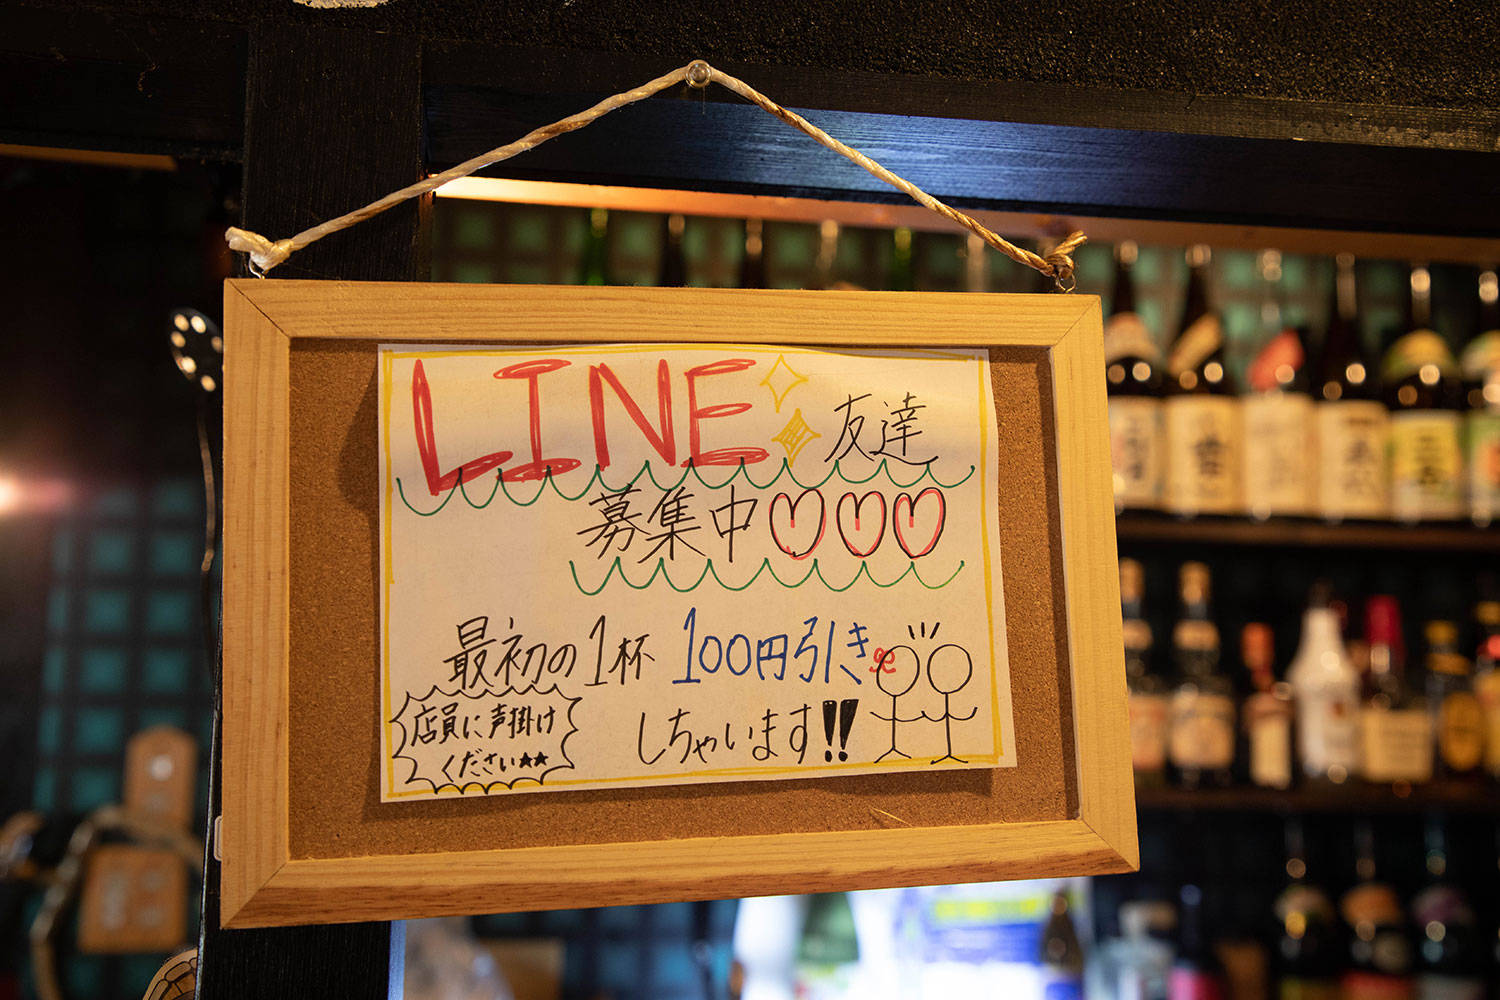 LINE 友達
募集中♡♡♡
最初の1杯 100円引き
しちゃいます!!
店員に声掛け
ください★★